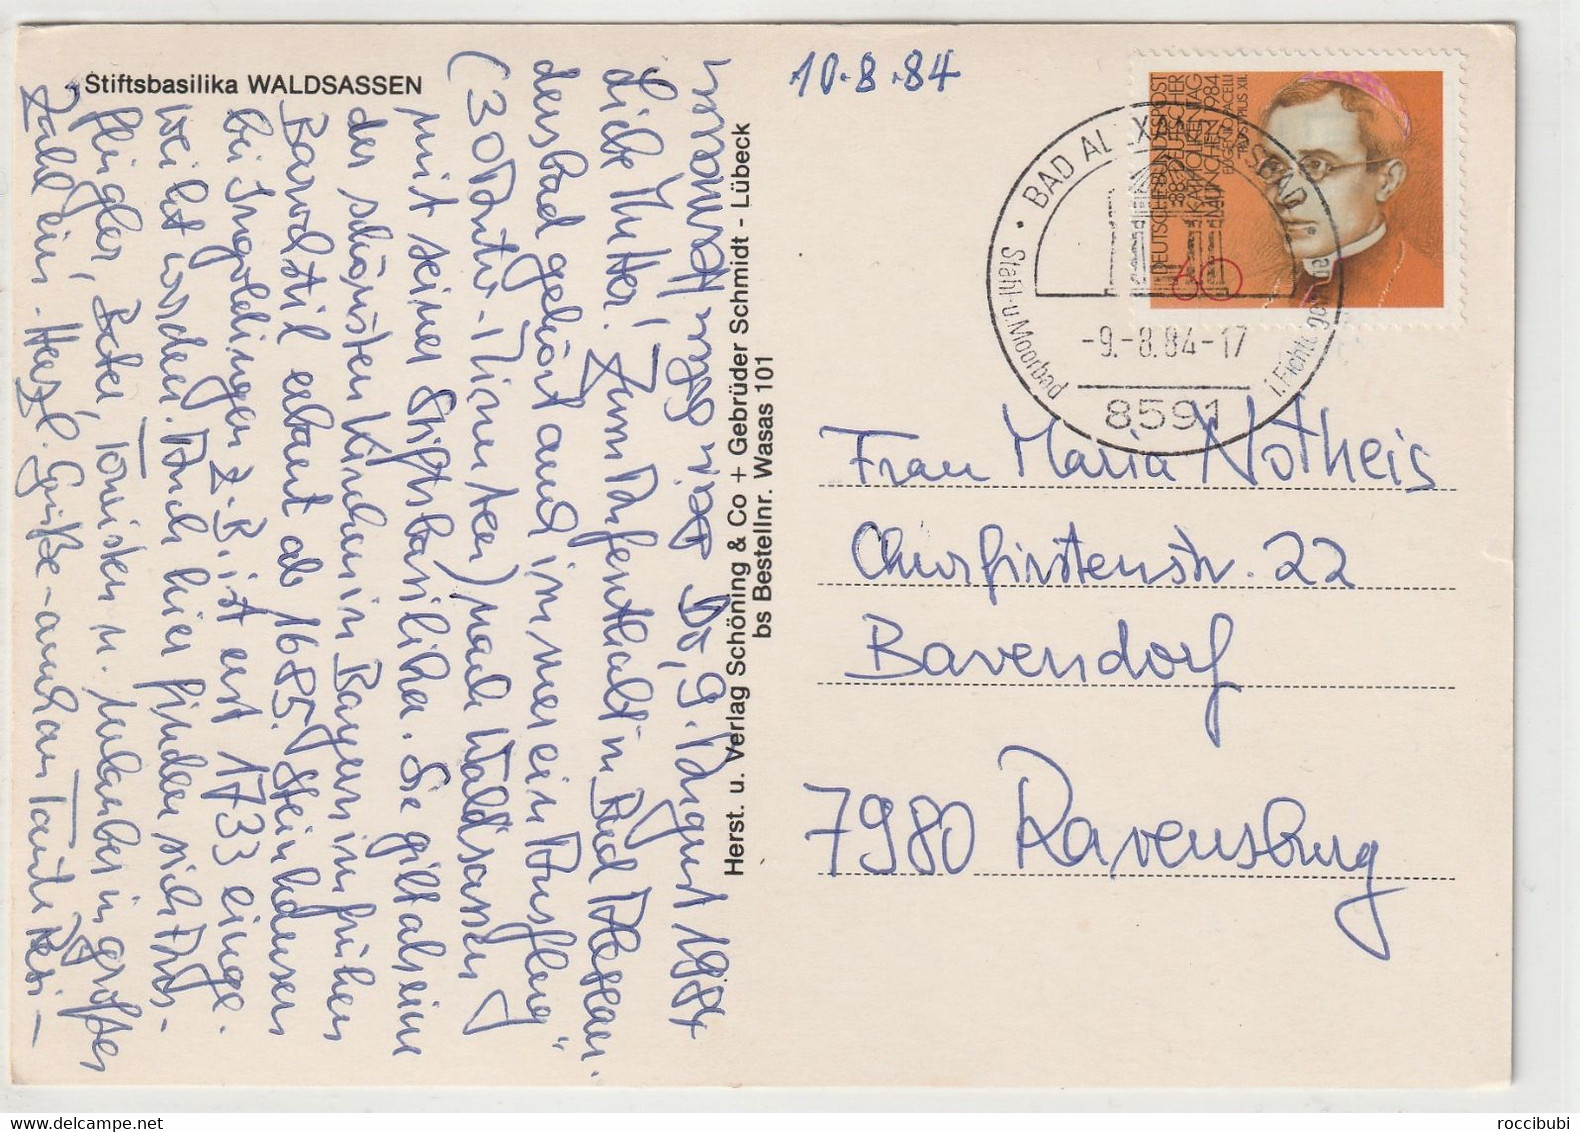 Stiftsbasilika WALDSASSEN
10.8.84
Do, 9. August 1984
Liebe Mutter! Zum Aufenthalt in Bad Alexan-
dersbad gehört auch immer ein "Ausflug"
(30 Auto-Minuten) nach Waldsassen
mit seiner Stiftsbasilika. Sie gilt als eine
der schönsten Kirchen in Bayern im frühen
Barockstil erbaut ab 1685. Steinhausen
bei Ingoldingen z. B. ist erst 1733 einge-
weiht worden. Auch hier finden sich Aus-
flügler, Beter, Touristen u. Urlauber in großer
Zahl ein. Herzl. Grüße - auch an Tante Resi -
Herst. u. Verlag Schöning & Co + Gebrüder Schmidt - Lübeck
bs Bestellnr. Wasas 101
DEUTSCHE BUNDESPOST
88. DEUTSCHER
KATHOLIKENTAG
MÜNCHEN 1984
EUGENIO PACELLI
PAPST PIUS XII.
60
BAD ALEXANDERSBAD
Stahl- u. Moorbad
i. Fichtelgebirge
-9.-8.84-17
8591
Frau Maria Notheis
Churfürstenstr. 22
Bavendorf
7980 Ravensburg
roccibubi